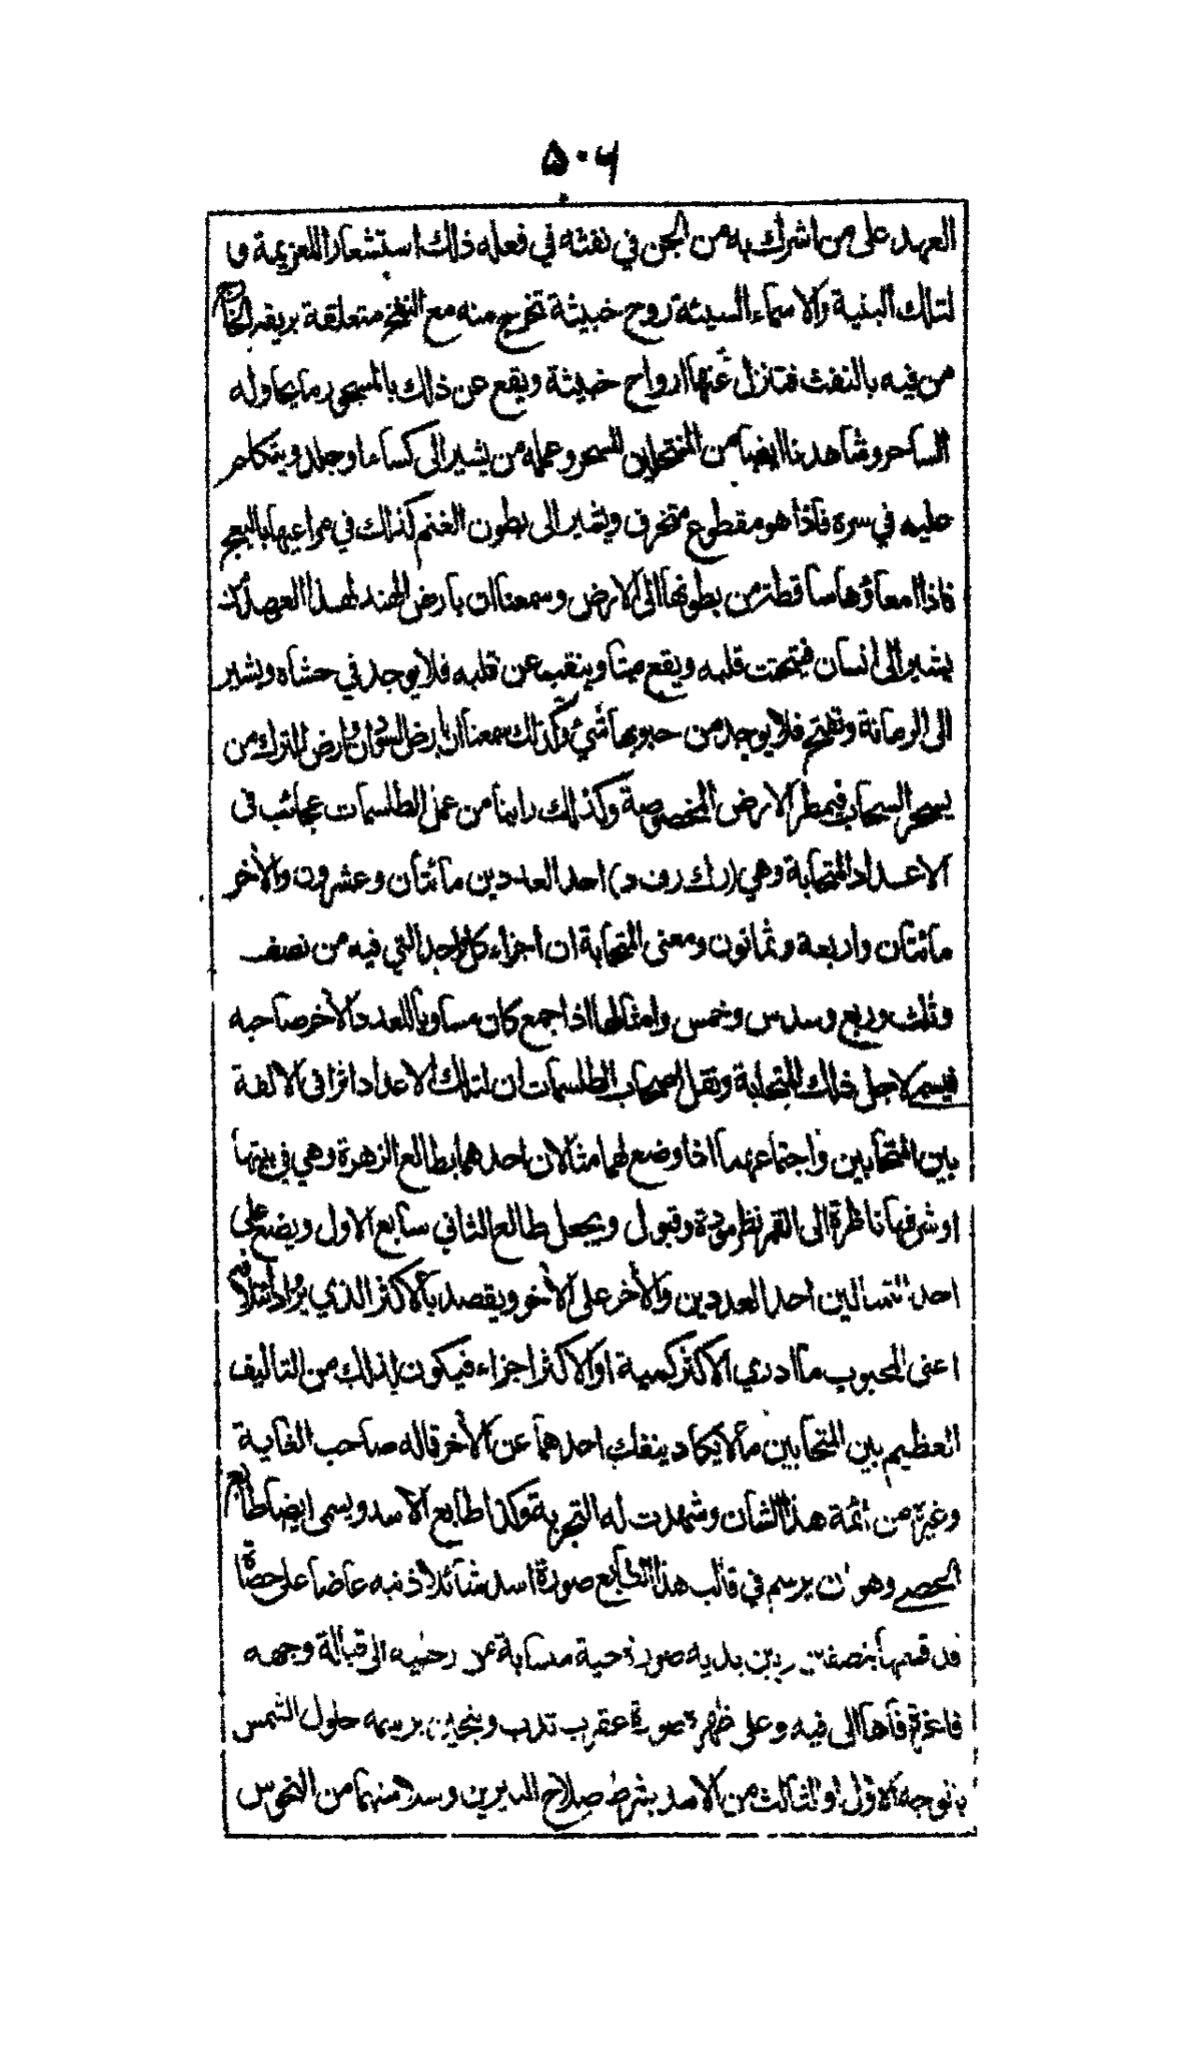 ۵۰۶
العهد على من اشرك به من الجن في نفثه في فعله ذلك استشعارا للعزيمة و
لتلك البنية والاسماء السيئة روح خبيثة تخرج منه مع النفخ متعلقة بريقه الخارج
من فيه بالنفث فتنزل عنها ارواح خبيثة ويقع عن ذلك بالمسحور ما يحاوله
الساحر وشاهدنا ايضا من المنتحلين للسحر وعمله من يشير الى كساء او جلد ويتكلم
عليه في سره فاذا هو مقطوع متخرق ويشير الى بطون الغنم كذلك في مراعيها بالبعج
فاذا امعاؤها ساقطة من بطونها الى الارض وسمعنا ان بارض الهند لهذا العهد
يشير الى انسان فيتحتت قلبه ويقع ميتا وينقب عن قلبه فلا يوجد في حشاه ويشير
الى الرمانة وتفتح فلا يوجد من حبوبها شيء وكذلك سمعنا ان بارض السودان وارض الترك من
يسحر السحاب فيمطر الارض المخصوصة وكذلك راينا من عمل الطلسمات عجائب في
الاعداد المتحابة وهي (رك رف د) احد العددين مائتان وعشرون والاخر
مائتان واربعة وثمانون ومعنى المتحابة ان اجزاء كل واحد التي فيه من نصف
وثلث وربع وسدس وخمس وامثالها اذا جمع كان مساويا للعدد الاخر صاحبه
فيسمى لاجل ذلك المتحابة ونقل اصحاب الطلسمات ان لتلك الاعداد اثرا في الالفة
بين المتحابين واجتماعهما اذا وضع لهما مثالان احدهما بطالع الزهرة وهي في بيتها
او شرفها ناظرة الى القمر نظر مودة وقبول ويجعل طالع الثاني سابع الاول ويضع على
احد التمثالين احد العددين والاخر على الاخر ويقصد بالاكثر الذي يراد ائتلافه
اعنى المحبوب ما ادري الاكثر كمية او الاكثر اجزاء فيكون لذلك من التاليف
العظيم بين المتحابين ما لا يكاد ينفك احدهما عن الاخر قاله صاحب الغاية
وغيره من ائمة هذا الشان وشهدت له التجربة وكذا طابع الاسد ويسمى ايضا طابع
الحصى وهو ان يرسم في قالب هذا الطابع صورة اسد شائلا ذنبه عاضا على حصاة
قد قسمها بنصفين وبين يديه صورة حية منسابة من رجليه الى قبالة وجهه
فاغرة فاها الى فيه وعلى ظهره صورة عقرب تدب ويتحين برسمه حلول الشمس
بالوجه الاول او الثالث من الاسد بشرط صلاح النيرين وسلامتهما من النحوس